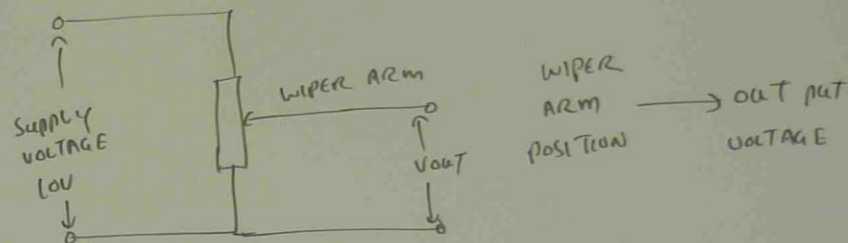 SUPPLY
VOLTAGE
10V
WIPER ARM
VOUT
WIPER
ARM
POSITION
OUT PUT
VOLTAGE